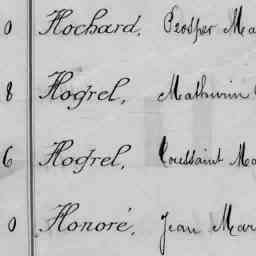 0 Hochard, Prosper Ma
8 Hogrel, Mathurin
6 Hogrel, Toussaint Ma
0 Honoré, Jean Mar